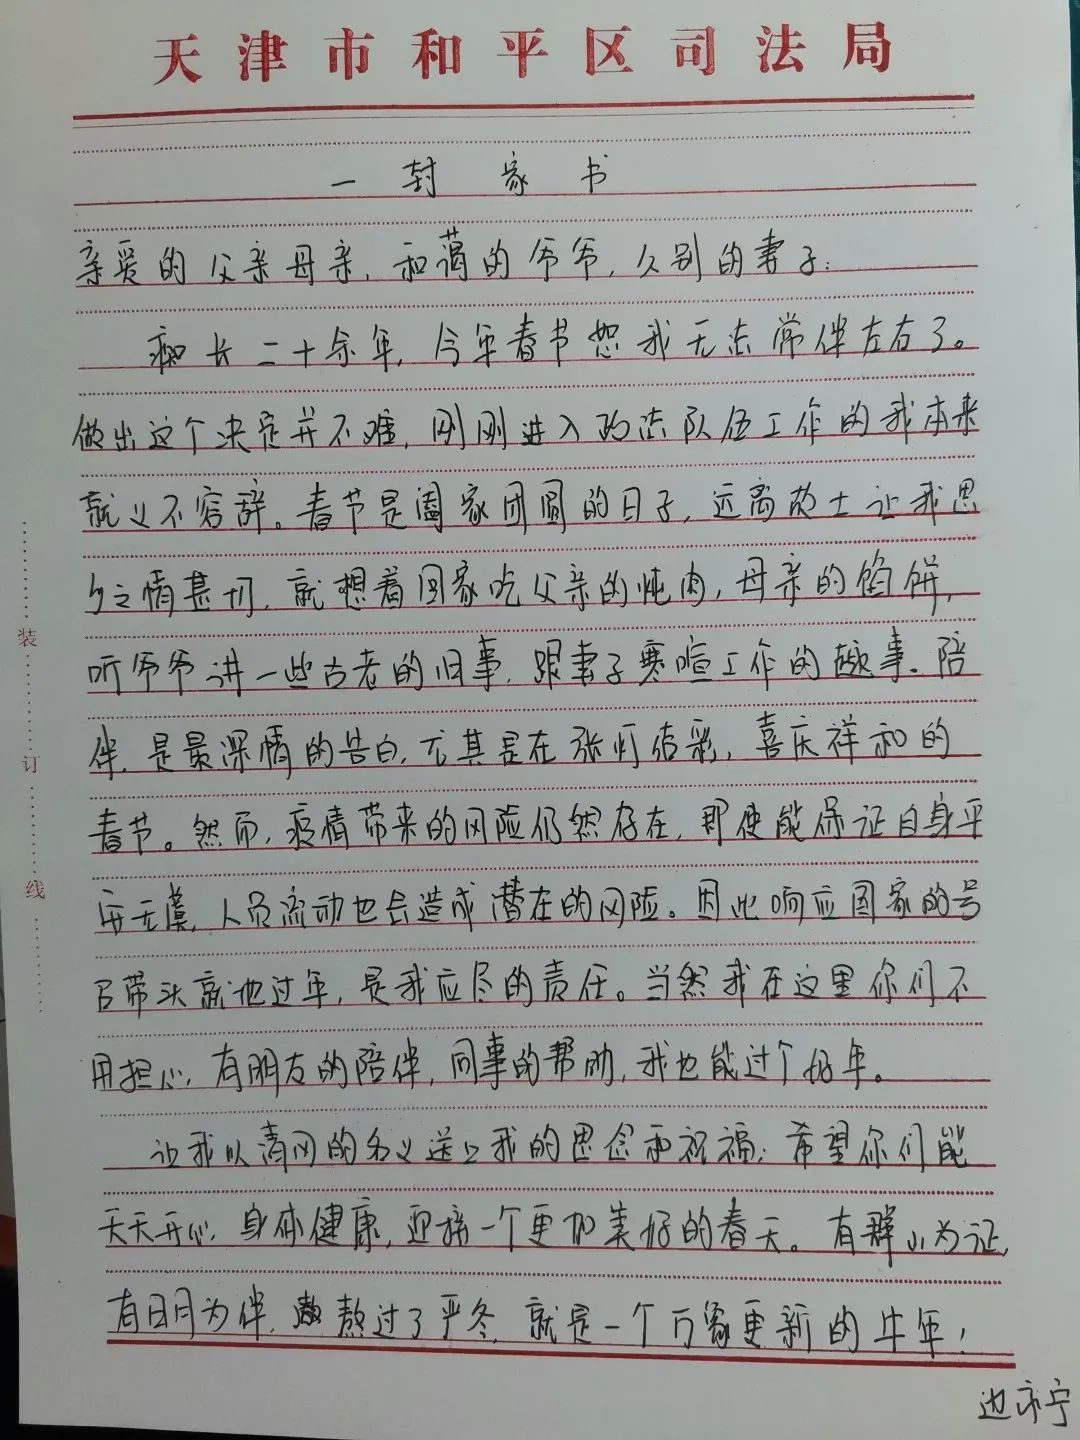 天津市和平区司法局
一封家书
亲爱的父亲母亲，和蔼的爷爷，久别的妻子：
痴长二十余年，今年春节恕我无法常伴左右了。
做出这个决定并不难，刚刚进入政法队伍工作的我本来
就义不容辞。春节是阖家团圆的日子，远离故土让我思
乡之情甚切，就想着回家吃父亲的炖肉，母亲的馅饼，
听爷爷讲一些古老的旧事，跟妻子寒暄工作的趣事。陪
伴，是最深情的告白，尤其是在张灯结彩，喜庆祥和的
春节。然而，疫情带来的风险仍然存在，即使能保证自身平
安无虞，人员流动也会造成潜在的风险。因此响应国家的号
召带头就地过年，是我应尽的责任。当然我在这里你们不
用担心，有朋友的陪伴，同事的帮助，我也能过个好年。
让我以清风的名义送上我的思念和祝福：希望你们能
天天开心，身体健康，迎接一个更加美好的春天。有群山为证，
有日月为伴，熬过了严冬，就是一个万象更新的牛年！
边亦宁
装
订
线